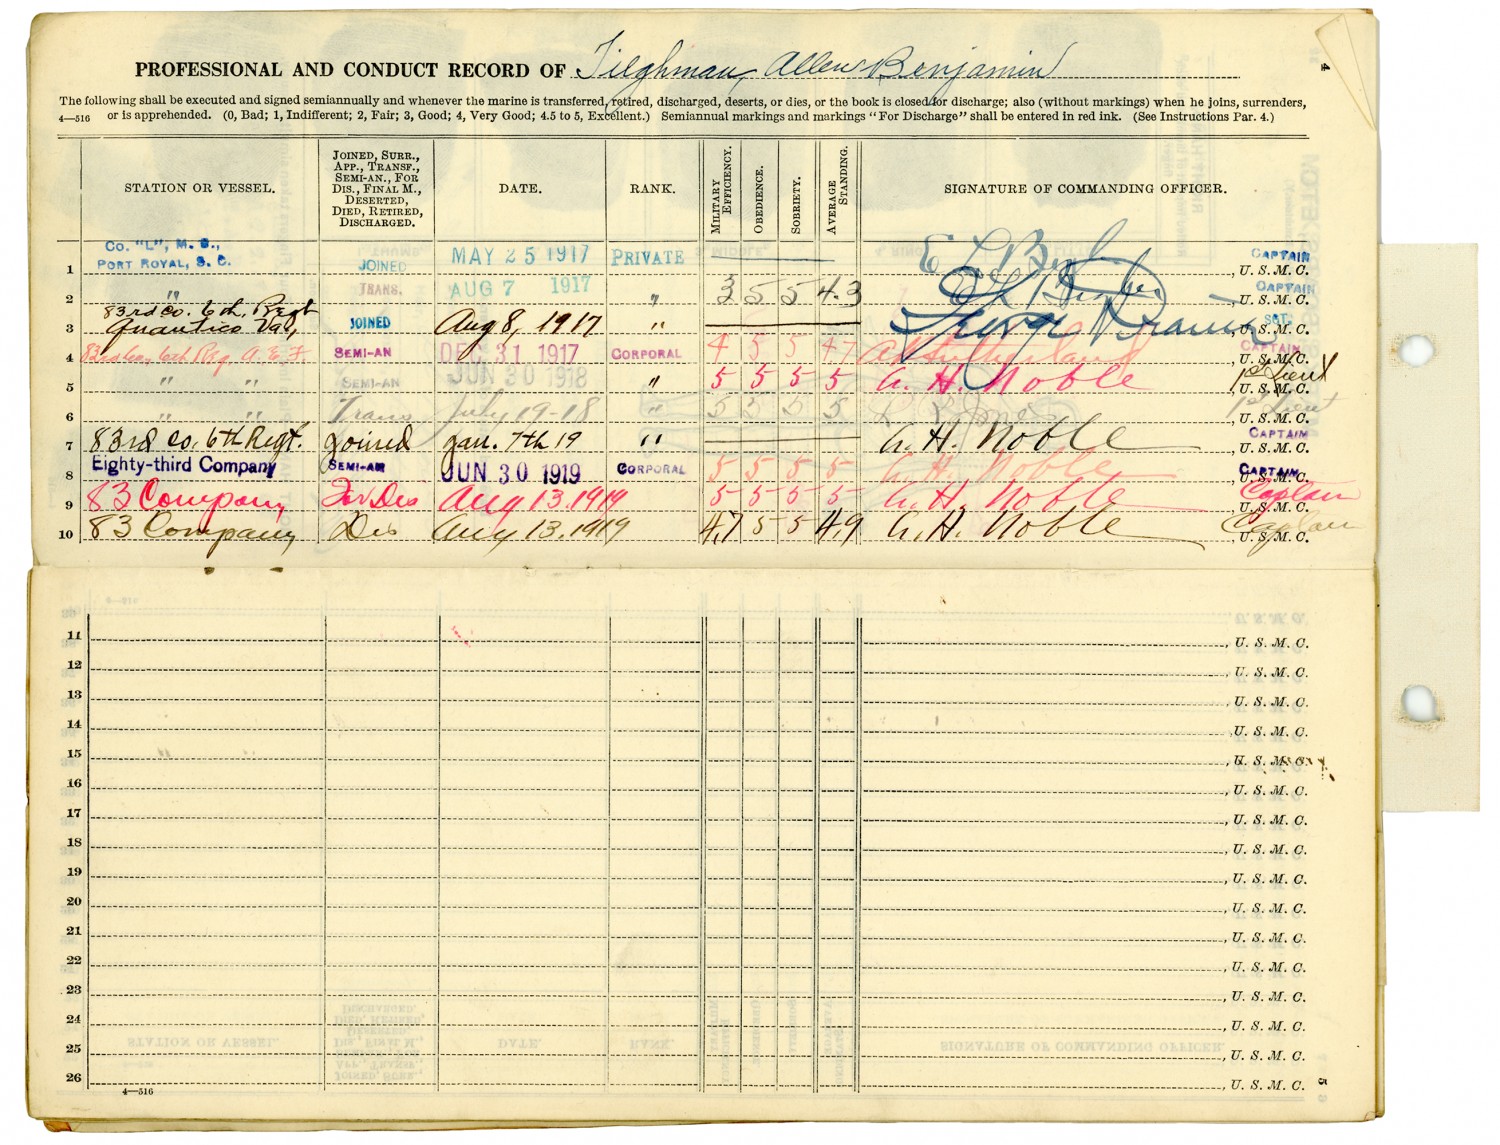 PROFESSIONAL AND CONDUCT RECORD OF Tilghman, Allen Benjamin
4
The following shall be executed and signed semiannually and whenever the marine is transferred, retired, discharged, deserts, or dies, or the book is closed for discharge; also (without markings) when he joins, surrenders,
4—516 or is apprehended. (0, Bad; 1, Indifferent; 2, Fair; 3, Good; 4, Very Good; 4.5 to 5, Excellent.) Semiannual markings and markings "For Discharge" shall be entered in red ink. (See Instructions Par. 4.)
STATION OR VESSEL.
JOINED, SURR.,
APP., TRANSF.,
SEMI-AN., FOR
DIS., FINAL M.,
DESERTED,
DIED, RETIRED,
DISCHARGED.
DATE.
RANK.
MILITARY EFFICIENCY.
OBEDIENCE.
SOBRIETY.
AVERAGE STANDING.
SIGNATURE OF COMMANDING OFFICER.
Co. "L", M. B.,
1 PORT ROYAL, S. C. JOINED MAY 25 1917 PRIVATE CAPTAIN , U. S. M. C.
2 " TRANS. AUG 7 1917 " 3 5 5 4.3 CAPTAIN , U. S. M. C.
83rd Co. 6th Regt
3 Quantico Va, JOINED Aug 8, 1917 " SGT. , U. S. M. C.
4 82rd Co, 6th Reg. A. E. F. SEMI-AN DEC 31 1917 CORPORAL 4 5 5 4.7 Sutherland CAPTAIN , U. S. M. C.
5 " " SEMI-AN JUN 30 1918 " 5 5 5 5 A. H. Noble 1st Lieut , U. S. M. C.
6 " " Trans July 19-18 " 5 5 5 5 1st Lieut , U. S. M. C.
7 83rd Co. 6th Regt. Joined Jan. 7th 19 " A. H. Noble CAPTAIN , U. S. M. C.
8 Eighty-third Company SEMI-AN JUN 30 1919 CORPORAL 5 5 5 5 A. H. Noble CAPTAIN , U. S. M. C.
9 83 Company For Dis Aug 13.1919 5 5 5 5 A. H. Noble Captain , U. S. M. C.
10 83 Company Dis Aug 13.1919 4.7 5 5 4.9 A. H. Noble Captain , U. S. M. C.
11 , U. S. M. C.
12 , U. S. M. C.
13 , U. S. M. C.
14 , U. S. M. C.
15 , U. S. M. C.
16 , U. S. M. C.
17 , U. S. M. C.
18 , U. S. M. C.
19 , U. S. M. C.
20 , U. S. M. C.
21 , U. S. M. C.
22 , U. S. M. C.
23 , U. S. M. C.
24 , U. S. M. C.
25 , U. S. M. C.
26 , U. S. M. C.
4—516
5